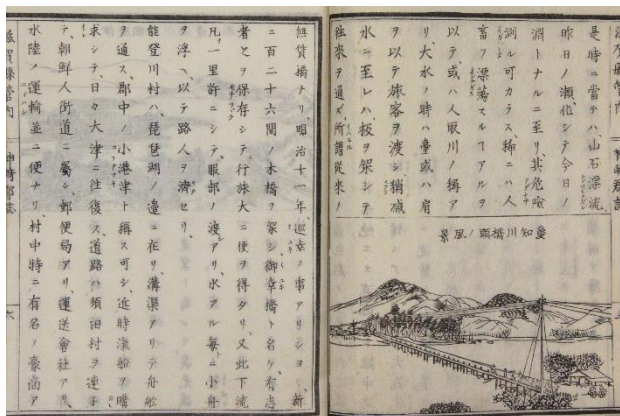 是時ニ當テハ、山石漂流、
昨日ノ瀬化シテ今日ノ
淵トナルニ至リ、其危險
測ル可カラス、稀ニハ人
畜ヲ漂蕩スルヿアルヲ
以テ或ハ人取川ノ稱ア
リ、大水ノ時ハ臺或ハ肩
ヲ以テ旅客ヲ渡シ、稍減
水ニ至レハ、板ヲ架シテ
往來ヲ通ズ、所謂從來ノ
愛知川橋頭ノ風景
無賃橋ナリ、明治十一年、巡幸ノ事アリシヨリ、新
ニ百二十六間ノ木橋ヲ架シ、御幸橋ト名ケ、有志
者之ヲ保存シテ、行旅大ニ便ヲ得タリ、又此下流
凡一里許ニシテ、服部ノ渡アリ、水アル每ニ小舟
ヲ浮ヘ、以テ路人ヲ濟セリ、
能登川村ハ、琵琶湖ノ邊ニ在リ、溝渠アリテ舟舩
ヲ通ス、郡中ノ小港津ト稱ス可シ、近時滊船ヲ購
求シテ、日々大津ニ往復ス、道路ハ須田村ヲ連子
テ、朝鮮人街道ニ屬シ、郵便局アリ、運送會社アリ、
水陸ノ運輸並ニ便ナリ、村中特ニ有名ノ豪商ア
滋賀縣管内
神崎郡誌
六